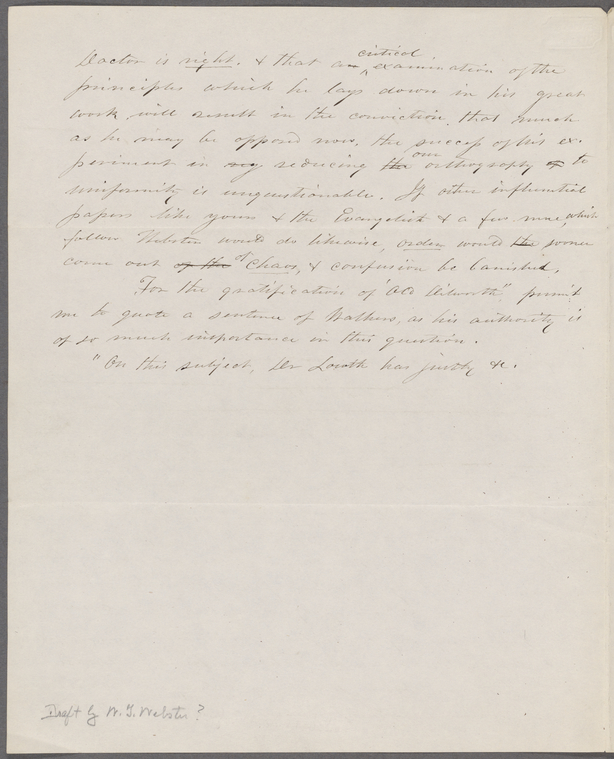 Doctor is right, & that a critical examination of the
principles which he lays down in his great
work will result in the conviction, that much
as he may be opposed now, the success of his ex-
periment in reducing our orthography to
uniformity is unquestionable. If other influential
papers like yours & the Evangelist & a few more, which
follow Webster would do likewise, order would sooner
come out of chaos, & confusion be banished.
For the gratification of "Old Dilworth" permit
me to quote a sentence of Walkers, as his authority is
of so much importance in this question.
"On this subject, Dr Lowth has justly &c.
Draft by W. G. Webster?